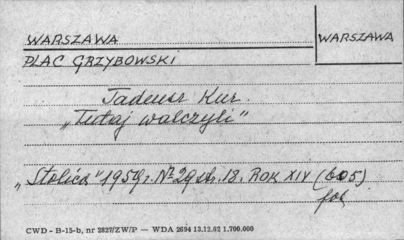 WARSZAWA
WARSZAWA
PLAC GRZYBOWSKI
Tadeusz Kur.
„Tutaj walczyli”
„Stolica” 1959 r. Nº 29 str. 18. ROK XIV (605)
fot
CWD - B-15-b, nr 2827/ZW/P — WDA 2694 13.12.62 1.700.000